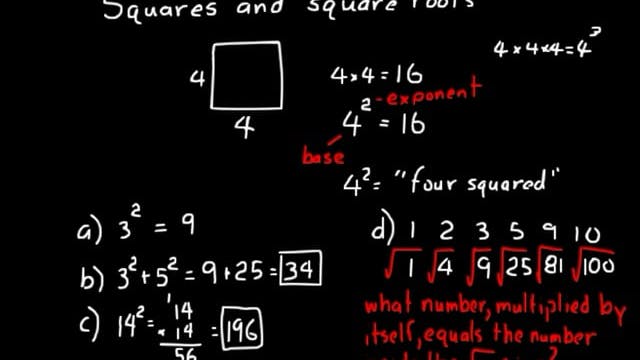 Squares and square roots
4×4×4=4³
4
4×4=16
4
4² - exponent
= 16
base
4² = "four squared"
a) 3² = 9
b) 3²+5² = 9+25 = 34
c) 14² = 14
× 14
56
= 196
d) 1 2 3 5 9 10
√1 √4 √9 √25 √81 √100
what number, multiplied by
itself, equals the number